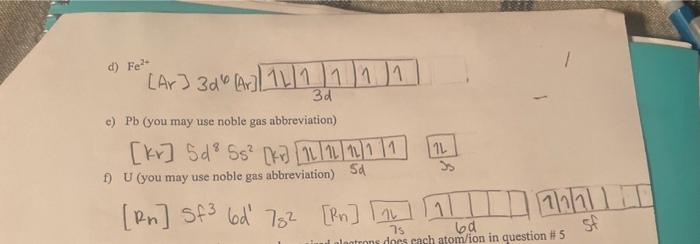 d) Fe²⁺
[Ar] 3d⁶ [Ar] 1L 1 1 1 1
3d
e) Pb (you may use noble gas abbreviation)
[Kr] 5d⁸ 5s² [Kr] 1L 1L 1L 1 1 1L
5d 5s
f) U (you may use noble gas abbreviation)
[Rn] 5f³ 6d¹ 7s² [Rn] 1L 1 1 1 1
7s 6d 5f
electrons does each atom/ion in question # 5